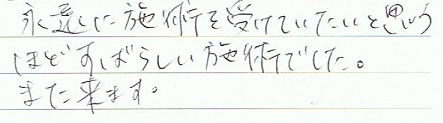 永遠に施術を受けていたいと思う
ほどすばらしい施術でした。
また来ます。